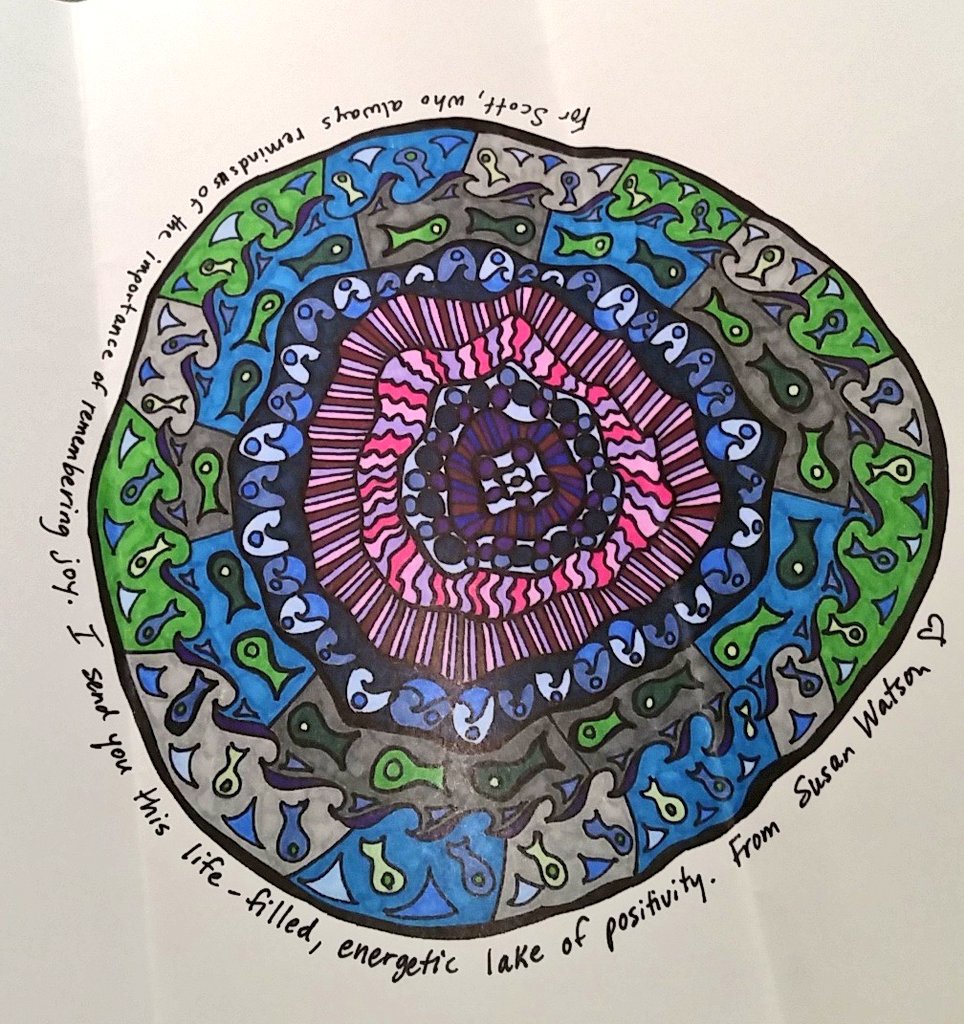 For Scott, who always reminds us of the importance of remembering joy. I send you this life-filled, energetic lake of positivity. From Susan Watson ♡